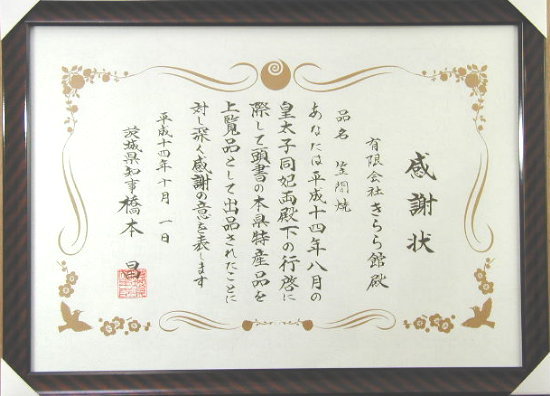 感謝状
有限会社きらら館殿
品名 笠間焼
あなたは平成十四年八月の
皇太子同妃両殿下の行啓に
際して頭書の本県特産品を
上覧品として出品されたことに
対し深く感謝の意を表します
平成十四年十月一日
茨城県知事橋本昌